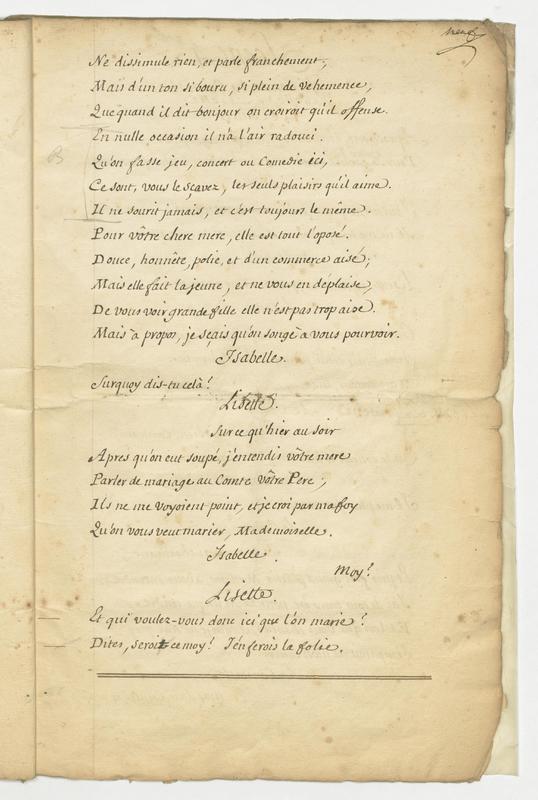 neuf
Ne dissimule rien, et parle franchement;
Mais d'un ton si bouru, si plein de vehemence,
Que quand il dit bonjour on croiroit qu'il offense.
En nulle occasion il n'a l'air radouci.
B
Qu'on fasse jeu, concert ou Comedie ici,
Ce sont, vous le sçavez, les seuls plaisirs qu'il aime.
Il ne sourit jamais, et c'est toujours le même.
Pour vôtre chere mere, elle est tout l'oposé.
Douce, honnête, polie, et d'un commerce aisé;
Mais elle fait la jeune, et ne vous en déplaise,
De vous voir grande fille elle n'est pas trop aise.
Mais à propos, je sçais qu'on songe à vous pourvoir.
Isabelle.
Surquoy dis-tu celà?
Lisette.
Sur ce qu'hier au soir
Apres qu'on eut soupé, j'entendis vôtre mere
Parler de mariage au Comte vôtre Pere;
Ils ne me voyoient point, et je croi par ma foy
Qu'on vous veut marier, Mademoiselle.
Isabelle.
Moy?
Lisette.
Et qui voulez-vous donc ici que l'on marie?
Dites, seroit ce moy? J'en ferois la folie.